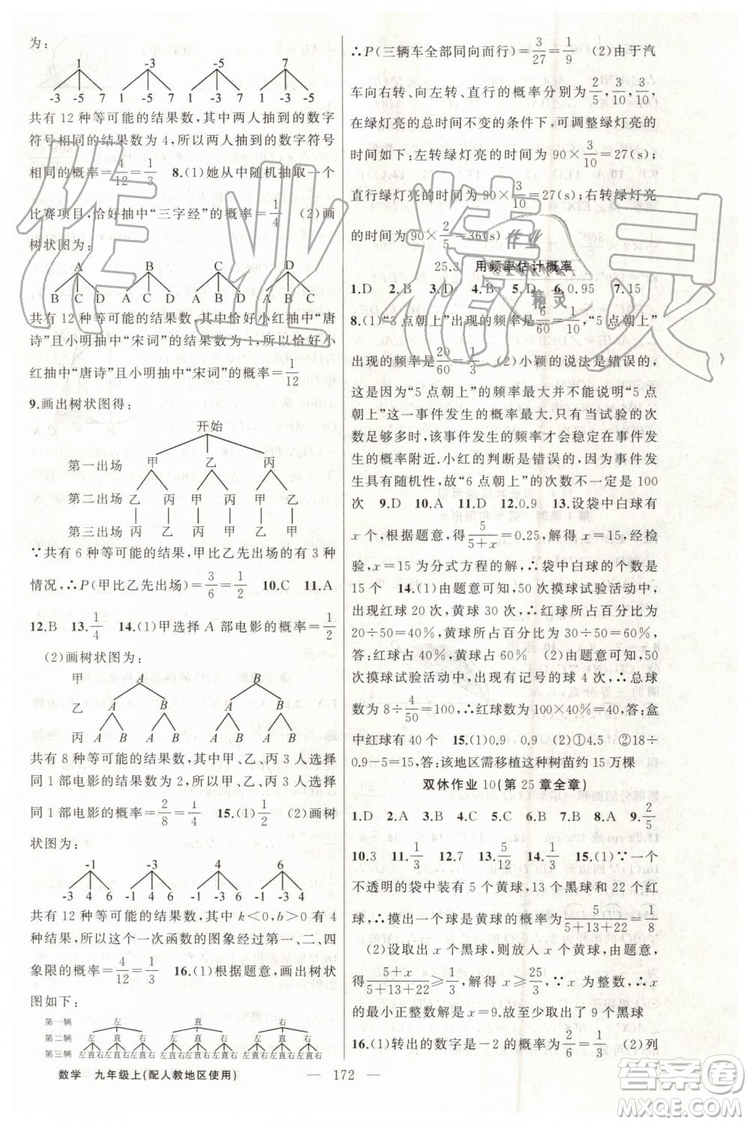 为：
1 -3 -5 7
-3 -5 7 1 -5 7 1 -3 7 1 -3 -5
共有 12 种等可能的结果数，其中两人抽到的数字
符号相同的结果数为 4，所以两人抽到的数字符号
相同的概率＝4/12＝1/3 8.(1)她从中随机抽取一个
比赛项目，恰好抽中“三字经”的概率＝1/4 (2)画
树状图为：
A B C D
B C D A C D A B D A B C
共有 12 种等可能的结果数，其中恰好小红抽中“唐
诗”且小明抽中“宋词”的结果数为 1，所以恰好小
红抽中“唐诗”且小明抽中“宋词”的概率＝1/12
9.画出树状图得：
开始
第一出场 甲 乙 丙
第二出场 乙 丙 甲 丙 甲 乙
第三出场 丙 乙 丙 甲 乙 甲
∵共有 6 种等可能的结果，甲比乙先出场的有 3 种
情况，∴P(甲比乙先出场)＝3/6＝1/2 10.C 11.A
12.B 13.1/4 14.(1)甲选择 A 部电影的概率＝1/2
(2)画树状图为：
甲 A B
乙 A B A B
丙 A B A B A B A B
共有 8 种等可能的结果数，其中甲、乙、丙 3 人选择
同 1 部电影的结果数为 2，所以甲、乙、丙 3 人选择
同 1 部电影的概率＝2/8＝1/4 15.(1)1/2 (2)画树
状图为：
-1 -3 4 6
-3 4 6 -1 4 6 -1 -3 6 -1 -3 4
共有 12 种等可能的结果数，其中 k＜0，b＞0 有 4 种
结果，所以这个一次函数的图象经过第一、二、四
象限的概率＝4/12＝1/3 16.(1)根据题意，画出树状
图如下：
第一辆 左 直 右
第二辆 左 直 右 左 直 右 左 直 右
第三辆 左直右 左直右 左直右 左直右 左直右 左直右 左直右 左直右 左直右
∴P(三辆车全部同向而行)＝3/27＝1/9 (2)由于汽
车向右转、向左转、直行的概率分别为2/5，3/10，3/10，
在绿灯亮的总时间不变的条件下，可调整绿灯亮
的时间如下：左转绿灯亮的时间为 90×3/10＝27(s)；
直行绿灯亮的时间为 90×3/10＝27(s)；右转绿灯亮
的时间为 90×2/5＝36(s)
25.3 用频率估计概率
1.D 2.B 3.B 4.B 5.D 6.0.95 7.15
8.(1)“3 点朝上”出现的频率是6/60＝1/10，“5 点朝上”
出现的频率是20/60＝1/3 (2)小颖的说法是错误的，
这是因为“5 点朝上”的频率最大并不能说明“5 点
朝上”这一事件发生的概率最大.只有当试验的次
数足够多时，该事件发生的频率才会稳定在事件发
生的概率附近.小红的判断是错误的，因为事件发
生具有随机性，故“6 点朝上”的次数不一定是 100
次 9.D 10.A 11.2 12.0.3 13.设袋中白球有
x 个，根据题意，得5/(5＋x)＝0.25，解得 x＝15，经检
验，x＝15 为分式方程的解.∴袋中白球的个数是
15 个 14.(1)由题意可知，50 次摸球试验活动中，
出现红球 20 次，黄球 30 次，∴红球所占百分比为
20÷50＝40％，黄球所占百分比为 30÷50＝60％，
答：红球占 40％，黄球占 60％ (2)由题意可知，50
次摸球试验活动中，出现有记号的球 4 次，∴总球
数为 8÷4/50＝100，∴红球数为 100×40％＝40，答：盒
中红球有 40 个 15.(1)0.9 0.9 (2)①4.5 ②18÷
0.9－5＝15，答：该地区需移植这种树苗约 15 万棵
双休作业 10(第 25 章全章)
1.D 2.B 3.C 4.C 5.C 6.C 7.D 8.A 9.2/5
10.3 11.1/3 12.4/7 13.1/12 14.8 15.(1)∵一个
不透明的袋中装有 5 个黄球，13 个黑球和 22 个红
球，∴摸出一个球是黄球的概率为5/(5＋13＋22)＝1/8
(2)设取出 x 个黑球，根据题意，
得(5＋x)/(5＋13＋22)≥1/3，解得 x≥25/3，∵x 为整数，∴x
的最小正整数解是 x＝9，答：至少取出了 9 个黑球
16.(1)转出的数字是－1 的概率为1/3 (2)列
数学 九年级上(配人教地区使用)
— 172 —
作业精灵
作业
精灵
答案卷